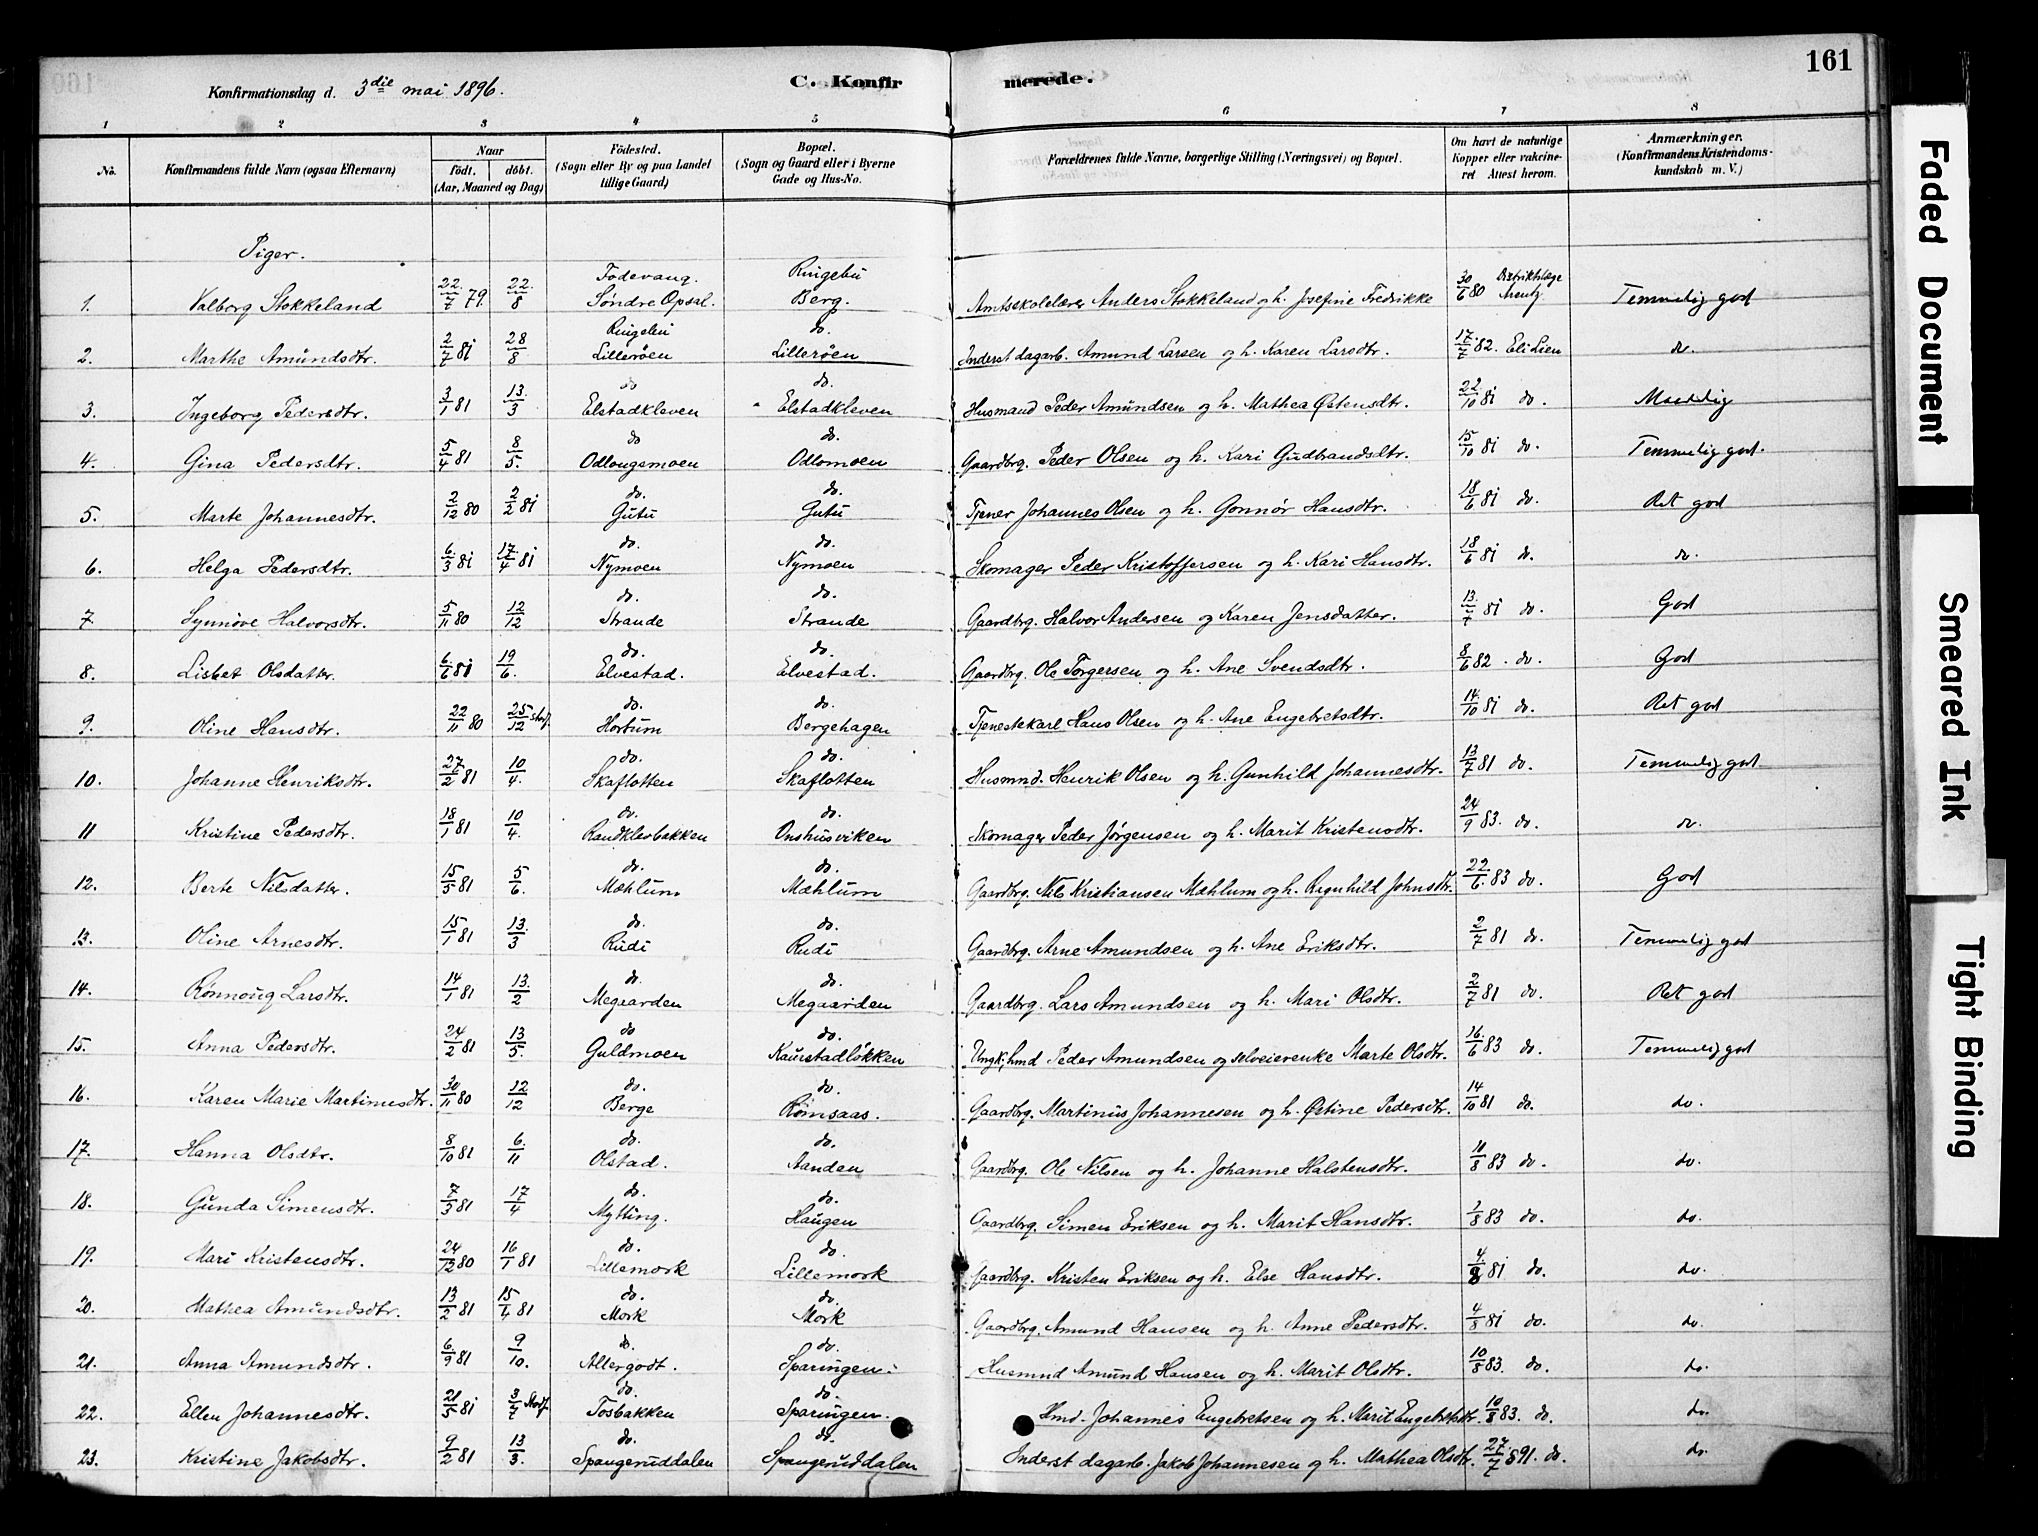 161
Konfirmationsdag d. 3die mai 1896.
C. Konfirmerede.
1 2 3 4 5 6 7 8
No.
Konfirmandens fulde Navn (ogsaa Efternavn)
Naar födt. döbt. (Aar, Maaned og Dag)
Födested. (Sogn eller By og paa Landet tillige Gaard)
Bopæl. (Sogn og Gaard eller i Byerne Gade og Hus-No.
Forældrenes fulde Navne, borgerlige Stilling (Næringsvei) og Bopæl.
Om havt de naturlige Kopper eller vakcineret Attest herom.
Anmærkninger. (Konfirmandens Kristendomskundskab m. V.)
Piger.
1. Valborg Stokkeland 22/7 79 22/8 Fodevang. Søndre Opsal. Ringebu Berg. Amtsskolelærer Anders Stokkeland og h. Josefine Fredrikke 30/6 80 Distriktslæge Arentz Temmelig god
2. Marthe Amundsdtr. 2/7 81 28/8 Ringebu Lillerøen do. Lillerøen Inderst dagarb. Amund Larsen og h. Karen Larsdtr. 17/7 82. Eli Lien do.
3. Ingeborg Pedersdtr. 3/1 81 13/3 do Elstadkleven do. Elstadkleven Husmand Peder Amundsen og h. Mathea Østensdtr. 22/10 81 do. Maadelig
4. Gina Pedersdtr. 5/4 81 8/5. do Odlougsmoen do. Odlomoen Gaardbrg. Peder Olsen og h. Kari Gudbrandsdtr. 15/10 81 do. Temmelig god.
5. Marte Johannesdtr. 2/12 80 2/2 81 do. Gutu do. Gutu Tjener Johannes Olsen og h. Gonnør Hansdtr. 18/6 81 do. Ret god
6. Helga Pedersdtr. 6/3 81 17/4 81 do. Nymoen do. Nymoen Skomager Peder Kristoffersen og h. Kari Hansdtr. 18/6 81 do. do.
7 Synnøve Halvorsdtr. 5/11 80 12/12 do. Strande do. Strande Gaardbrg. Halvor Andersen og Karen Jensdatter. 13/7 81 do. God
8. Lisbet Olsdatter. 6/6 81 19/6. do. Elvestad. do. Elvestad. Gaardbrg. Ole Torgersen og h. Ane Svendsdtr. 8/6 82. do. God
9. Oline Hansdtr. 22/11 80 25/12 do. Hortum do. Bergehagen Tjenestekarl Hans Olsen og h. Ane Engebretsdtr. 14/10 81 do. Ret god
10. Johanne Henriksdtr. 27/2 81 10/4. do. Skaflotten do. Skaflotten Husmnd. Henrik Olsen og h. Gunhild Johannesdtr. 13/7 81 do. Temmelig god
11 Kristine Pedersdtr. 18/1 81 10/4. do. Randklevbakken do. Onshusviken Skomager Peder Jørgensen og h. Marit Kristensdtr. 24/9 83. do. do.
12. Berte Nilsdatter. 15/5 81 5/6. do. Mæhlum do. Mæhlum Gaardbrg. Nils Kristiansen Mæhlum og h. Ragnhild Johnsdtr. 22/6. 83 do. God
13. Oline Arnesdtr. 15/1 81 13/3 do. Rudi do. Rudi Gaardbrg. Arne Amundsen og h. Ane Eriksdtr. 2/7 81 do. Temmelig god
14. Rønnoug Larsdtr. 14/1 81 13/2 do. Megaarden do. Megaarden Gaardbrg. Lars Amundsen og h. Mari Olsdtr. 2/7 81 do. Ret god
15. Anna Pedersdtr. 24/2 81 13/5. do Guldmoen do. Kaurstadløkken Ungk; hmd Peder Amundsen og selveierenke Marte Olsdtr. 16/6 83 do. Temmelig god
16. Karen Marie Martinusdtr. 30/11 80 12/12 do. Berge do. Rømsaas. Gaardbrg. Martinus Johannesen og h. Østine Pedersdtr. 14/10 81 do. do.
17. Hanna Olsdtr. 8/10 81 6/11 do. Olstad. do. Aanden Gaardbrg. Ole Nilsen og h. Johanne Halstensdtr. 10/8 83 do. do.
18. Gunda Simensdtr. 7/3 81 17/4 do. Mytting. do. Haugen Gaardbrg. Simen Eriksen og h. Marit Hansdtr. 2/8 83 do. do.
19. Mari Kristensdtr. 24/12 80 16/1 81 do. Lillemork do. Lillemork Gaardbrg. Kristen Eriksen og h. Else Hansdtr. 4/8 81 do. do.
20. Mathea Amundsdtr. 13/2 81 15/4 81 do. Mork do. Mork Gaardbrg. Amund Hansen og h. Anne Pedersdtr. 4/8 81 do. do.
21. Anna Amundsdtr. 6/9 81 9/10. do. Allergodt. do. Sparingen. Husmnd Amund Hansen og h. Marit Olsdtr. 10/8 83. do. do.
22. Ellen Johannesdtr. 21/5 81 3/7 do. Tosbakken do. Sparingen. Hmd. Johannes Engebretsen og h. Marit Engebretsdtr. 10/8 83. do. do.
23. Kristine Jakobsdtr. 9/2 81 13/3. do. Spangeruddalen do. Spangeruddalen Inderst dagarb. Jakob Johannesen og h. Mathea Olsdtr. 27/7 891. do. do.
Faded Document
Smeared Ink
Tight Binding